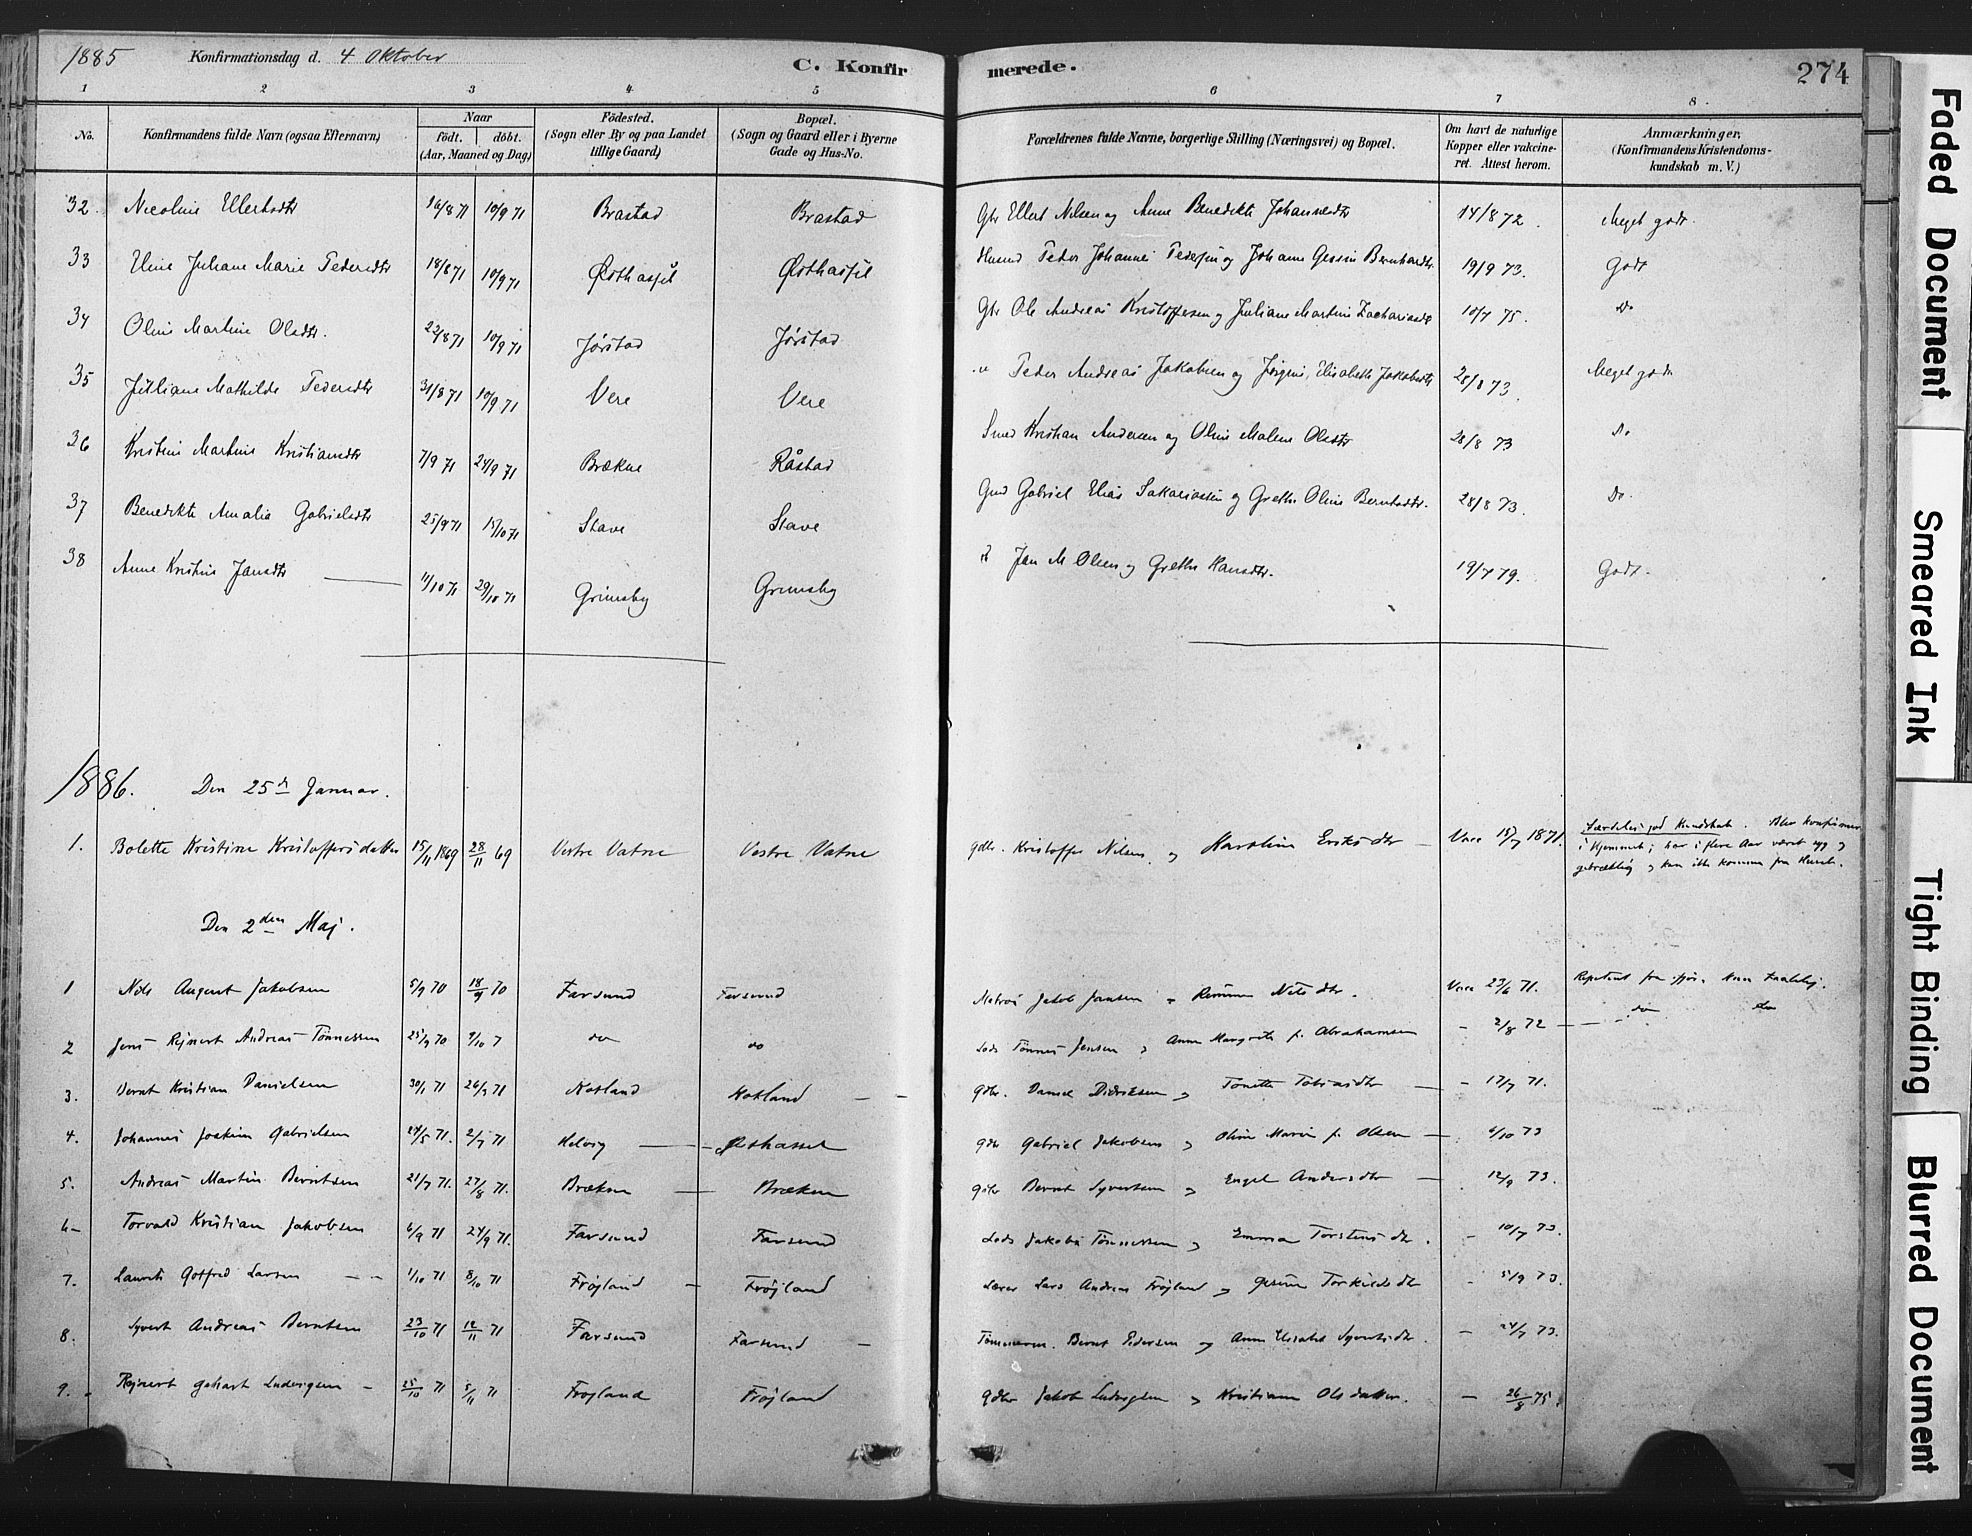 1885 Konfirmationsdag d. 4 Oktober C. Konfirmerede. 274
1 2 3 4 5 6 7 8.
No. Konfirmandens fulde Navn (ogsaa Efternavn) Naar født. døbt. (Aar, Maaned og Dag) Födested. (Sogn eller By og paa Landet tillige Gaard) Bopæl. (Sogn og Gaard eller i Byerne Gade og Hus-No. Forældrenes fulde Navne, borgerlige Stilling (Næringsvei) og Bopæl. Om havt de naturlige Kopper eller vakcineret. Attest herom. Anmærkninger, (Konfirmandens Kristendomskundskab m. V.)
32. Nicoline Ellertsdtr 16/8 71 10/9 71 Brastad Brastad Gbr Ellert Nilsen og Anne Benedikte Johannesdtr 14/8 72. Meget godt.
33 Juliane Marie Pedersdtr 18/8 71 10/9 71 Østhassel Østhassel Husmd Peder Johannes Pedersen og Johanne Gesine Bernhardtr. 19/9 73. Godt
34 Oline Martine Olsdtr. 22/8 71 10/9 71 Jørstad Jørstad Gbr Ole Andreas Kristoffersen og Juliane Martine Zachariasdtr 10/7 75. Do
35 Juliane Mathilde Pedersdtr 31/8 71 10/9 71 Vere Vere " Peder Andreas Jakobsen og Jørgine Elisabeth Jakobsdtr 28/8 73. Meget godt
36 Kristine Martine Kristiansdtr 7/9 71 24/9 71 Brækne Råstad Smed Kristian Andersen og Oline Malene Olsdtr 28/8 73 Do
37 Benedikte Amalia Gabrielsdtr 25/9 71 15/10 71 Stave Stave Gmd Gabriel Elias Sakariassen og Grethe Oline Berntsdtr. 28/8 73. Do.
38 Anne Kristine Jansdtr 11/10 71 29/10 71 Grimsby Grimsby Jan M Olsen og Grethe Hansdtr. 19/7 79. Godt.
1886. Den 25de Januar.
1. Bolette Kristine Kristoffersdatter 15/11 1869 28/11 69 Vestre Vatne Vestre Vatne gdbr. Kristoffer Nilsen og Karoline Eriksdtr Vacc 15/7 1871. Særdeles god Kundskab. Blev konfirmer.
i Hjemmet; har i flere Aar været syg og
gebrækkelig og kan ikke komme fra Huset.
Den 2den Maj.
1 Nils August Jakobsen 5/9 70 18/9 70 Farsund Farsund Matros Jakob Jansen og Nilsdtr. Vacc 23/6 71. Repetent fra ifjor. Kun taalelig.
2 Jens Rejnert Andreas Tönnessen 25/9 70 9/10 7 do do Lods Tönnes Jensen og Anne Margrete f. Abrahamsen - 2/8 72 - do do
3. Bernt Kristian Danielsen 30/1 71 26/3 71 Notland Notland gdbr. Daniel Didriksen og Tonette Tobiasdtr - 17/7 71.
4. Johannes Joakim Gabrielsen 24/5 71. 2/7 71 Helvig Østhassel gdbr Gabriel Jakobsen og Oline Marie f. Olsen - 6/10 73
5. Andreas Martin Berntsen 21/7 71. 27/8 71. Brækne Brækne gdbr Bernt Syvertsen og Engel Andersdtr - 12/9 73.
6 - Torvald Kristian Jakobsen 6/9 71 24/9 71. Farsund Farsund Lods Jakob Tönnessen og Emma Torstensdtr. - 10/7 73
7. Laurits Gotfred Larsen 1/10 71 8/10 71 Frøjland Frøjland Lærer Lars Andreas Frøjland og Gesine Torkildsdtr - 5/9 73.
8. Syvert Andreas Berntsen 23/10 71 12/11 71 Farsund Farsund Tömmerm. Bernt Pedersen og Anne Elisabet Syvertsdtr. - 24/7 73.
9. Rejnert Gerhart Ludvigsen 25/10 71 5/11 71 Frøjland Frøjland gdbr Jakob Ludvigsen og Kristiane Olsdatter. - 26/8 75.
Faded Document
Smeared Ink
Tight Binding
Blurred Document